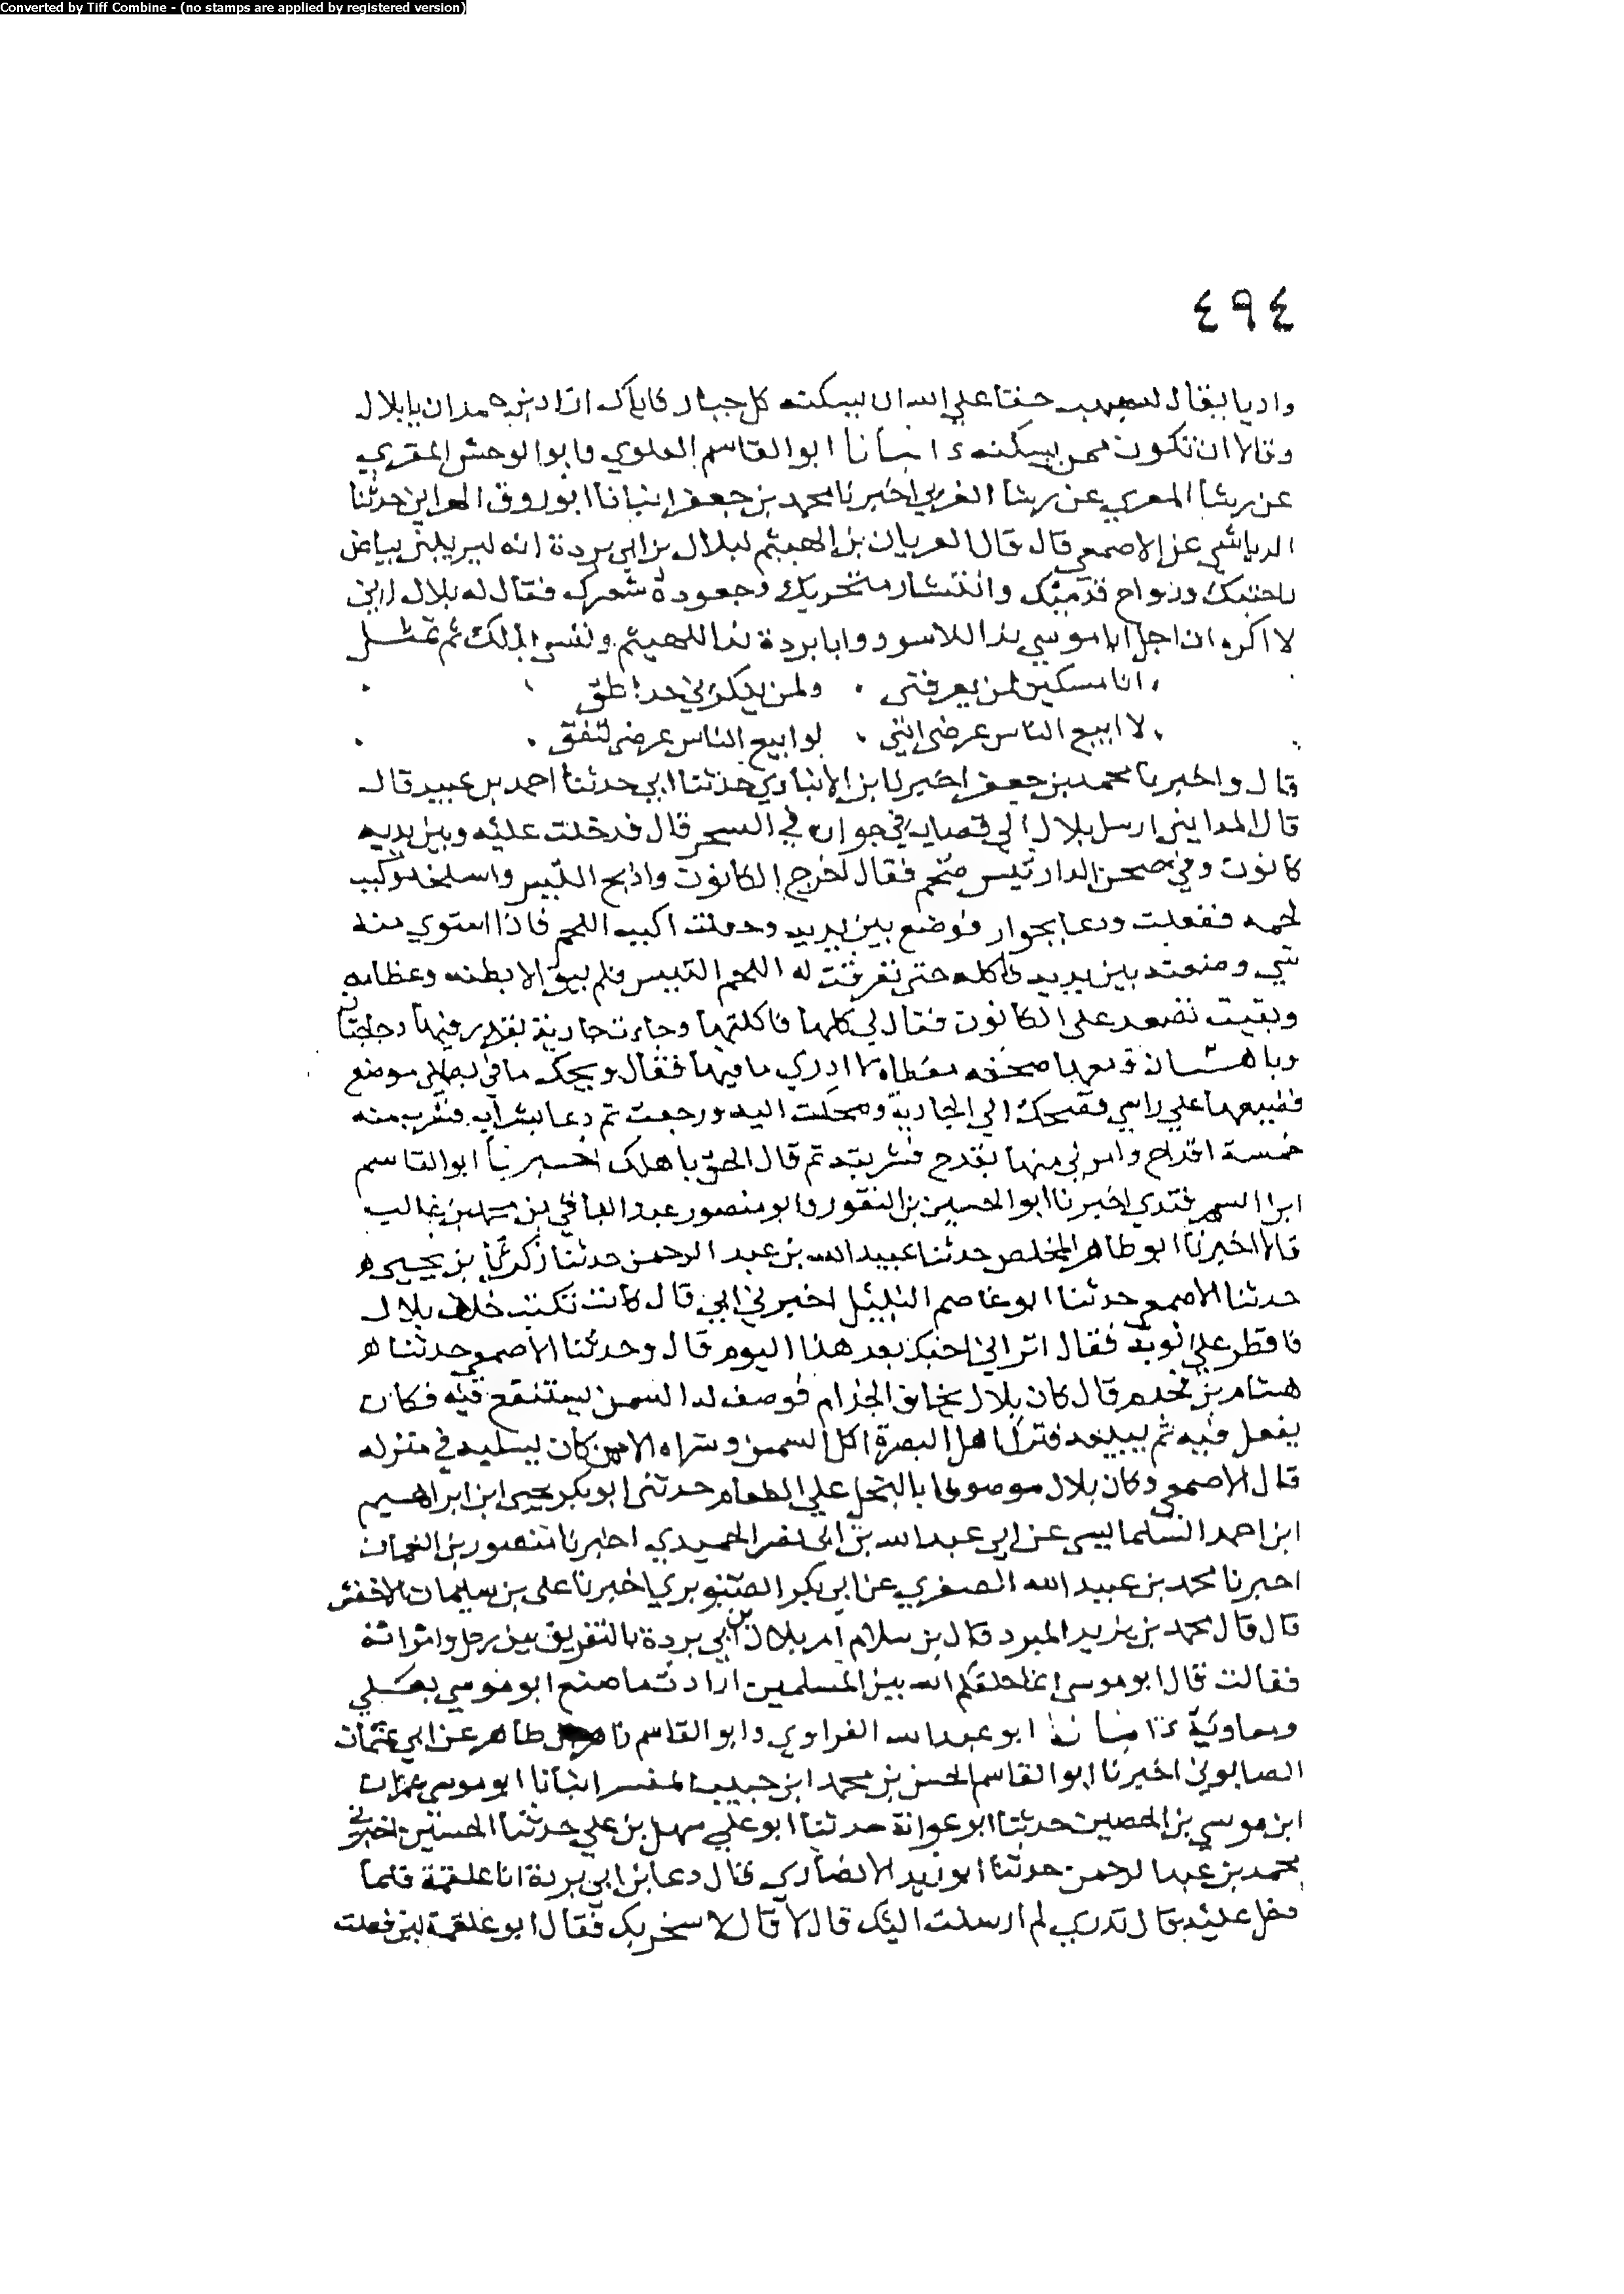 Converted by Tiff Combine - (no stamps are applied by registered version)
٤٩٤
واديا يقال له هبهب حقا على الله ان يسكنه كل جبار فاياك ان تكون يا بلال
وقالا ان تكون ممن يسكنه انبأنا ابو القاسم العلوي وابو الوحش المقري
عن رشا المقري اخبرنا محمد بن جعفر انبانا ابو روق الهزاني حدثنا
الرياشي عن الاصمعي قال قال العريان بن الهيثم لبلال بن ابي بردة انه ليريبني بياض
راحتيك ورواح قدميك وانتشار منخريك وجعودة شعرك فقال له بلال اني
لا اكره ان اجعل ابا موسي ندا للاسود وابا بردة ندا للهيثم ونفسي لذلك ثم تمثل
انا مسكين لمن يعرفني ولمن ينكرني جد نطق
لا ابيع الناس عرضي انني لو ابيع الناس عرضي لنفق
قال واخبرنا محمد بن جعفر اخبرنا بن الانباري حدثنا ابي حدثنا احمد بن عبيد قال
قال المدايني ارسل بلال الى قصاب في جواره في السحر قال فدخلت عليه وبين يديه
كانون وفي صحن الدار تيس ضخم فقال اخرج الكانون واذبح التيس واسلخه وكبب
لحمه ففعلت ودعا بخوان فوضع بين يديه وجعلت اكبب اللحم فاذا استوي منه
شي وضعته بين يديه فاكله حتى تعرقت له اللحم التيس فلم يبق الا بطنه وعظامه
وبقيت بضعة على الكانون فقال لي كلها فاكلتها وجاءت جارية بقدر فيها دجاجتان
وناهضان ومعها صحفه مغطاه لا ادري ما فيها فقال ويحك ما في بطني موضع
فضعها على راسي فضحكت الى الجارية وضحكت اليه ورجعت ثم دعا بشراب فشرب منه
خمسة اقداح وامر لي منها بقدح فشربته ثم قال الحق باهلك اخبرنا ابو القاسم
ابن السمرقندي اخبرنا ابو الحسين بن النقور وابو منصور عبد الباقي بن محمد بن غالب
قالا اخبرنا ابو طاهر المخلص حدثنا عبيد الله بن عبد الرحمن حدثنا زكريا بن يحيى
حدثنا الاصمعي حدثنا ابو عاصم النبيل اخبرني ابي قال كانت نكبت خلف بلال
فاقطر على ثوبه فقال اتراني احبك بعد هذا اليوم قال وحدثنا الاصمعي حدثنا
هشام بن محمد قال كان بلال يخاف الجذام فوصف له السمن يستنقع فيه فكان
يفعل فيه ثم يبيعه فترك اهل البصرة اكل السمن وشراه الا من كان يسليه في منزله
قال الاصمعي وكان بلال موصوفا بالبخل على الطعام حدثني ابو بكر يحيى ابن ابراهيم
ابن احمد السلماسي عن ابي عبد الله بن ابي نصر الحميدي اخبرنا منصور بن النعمان
اخبرنا محمد بن عبيد الله الصغري عن ابي بكر الصنوبري اخبرنا على بن سليمان الاخفش
قال قال محمد بن يزيد المبرد قال بن سلام امر بلال بن ابي بردة بالتفريق بين رجل وامراته
فقالت قال ابو موسى انما خلقكم الله بين المسلمين ارادت ما صنع ابو موسي بعلي
ومعاوية انبانا ابو عبد الله الفراوي وابو القاسم زاهر بن طاهر عن ابي عثمان
الصابوني اخبرنا ابو القاسم الحسن بن محمد ابن حبيب المفسر انبانا ابو موسى عمران
ابن موسى بن الحصين حدثنا ابو عوانة حدثنا ابو علي سهل بن علي حدثنا الحسين اخبرني
محمد بن عبد الرحمن حدثنا ابو زيد الانصاري قال دعا بن ابي بردة ابا علقمة فلما
دخل عليه قال تدري لم ارسلت اليك قال لا قال لاسخر بك فقال ابو علقمة لئن فعلت